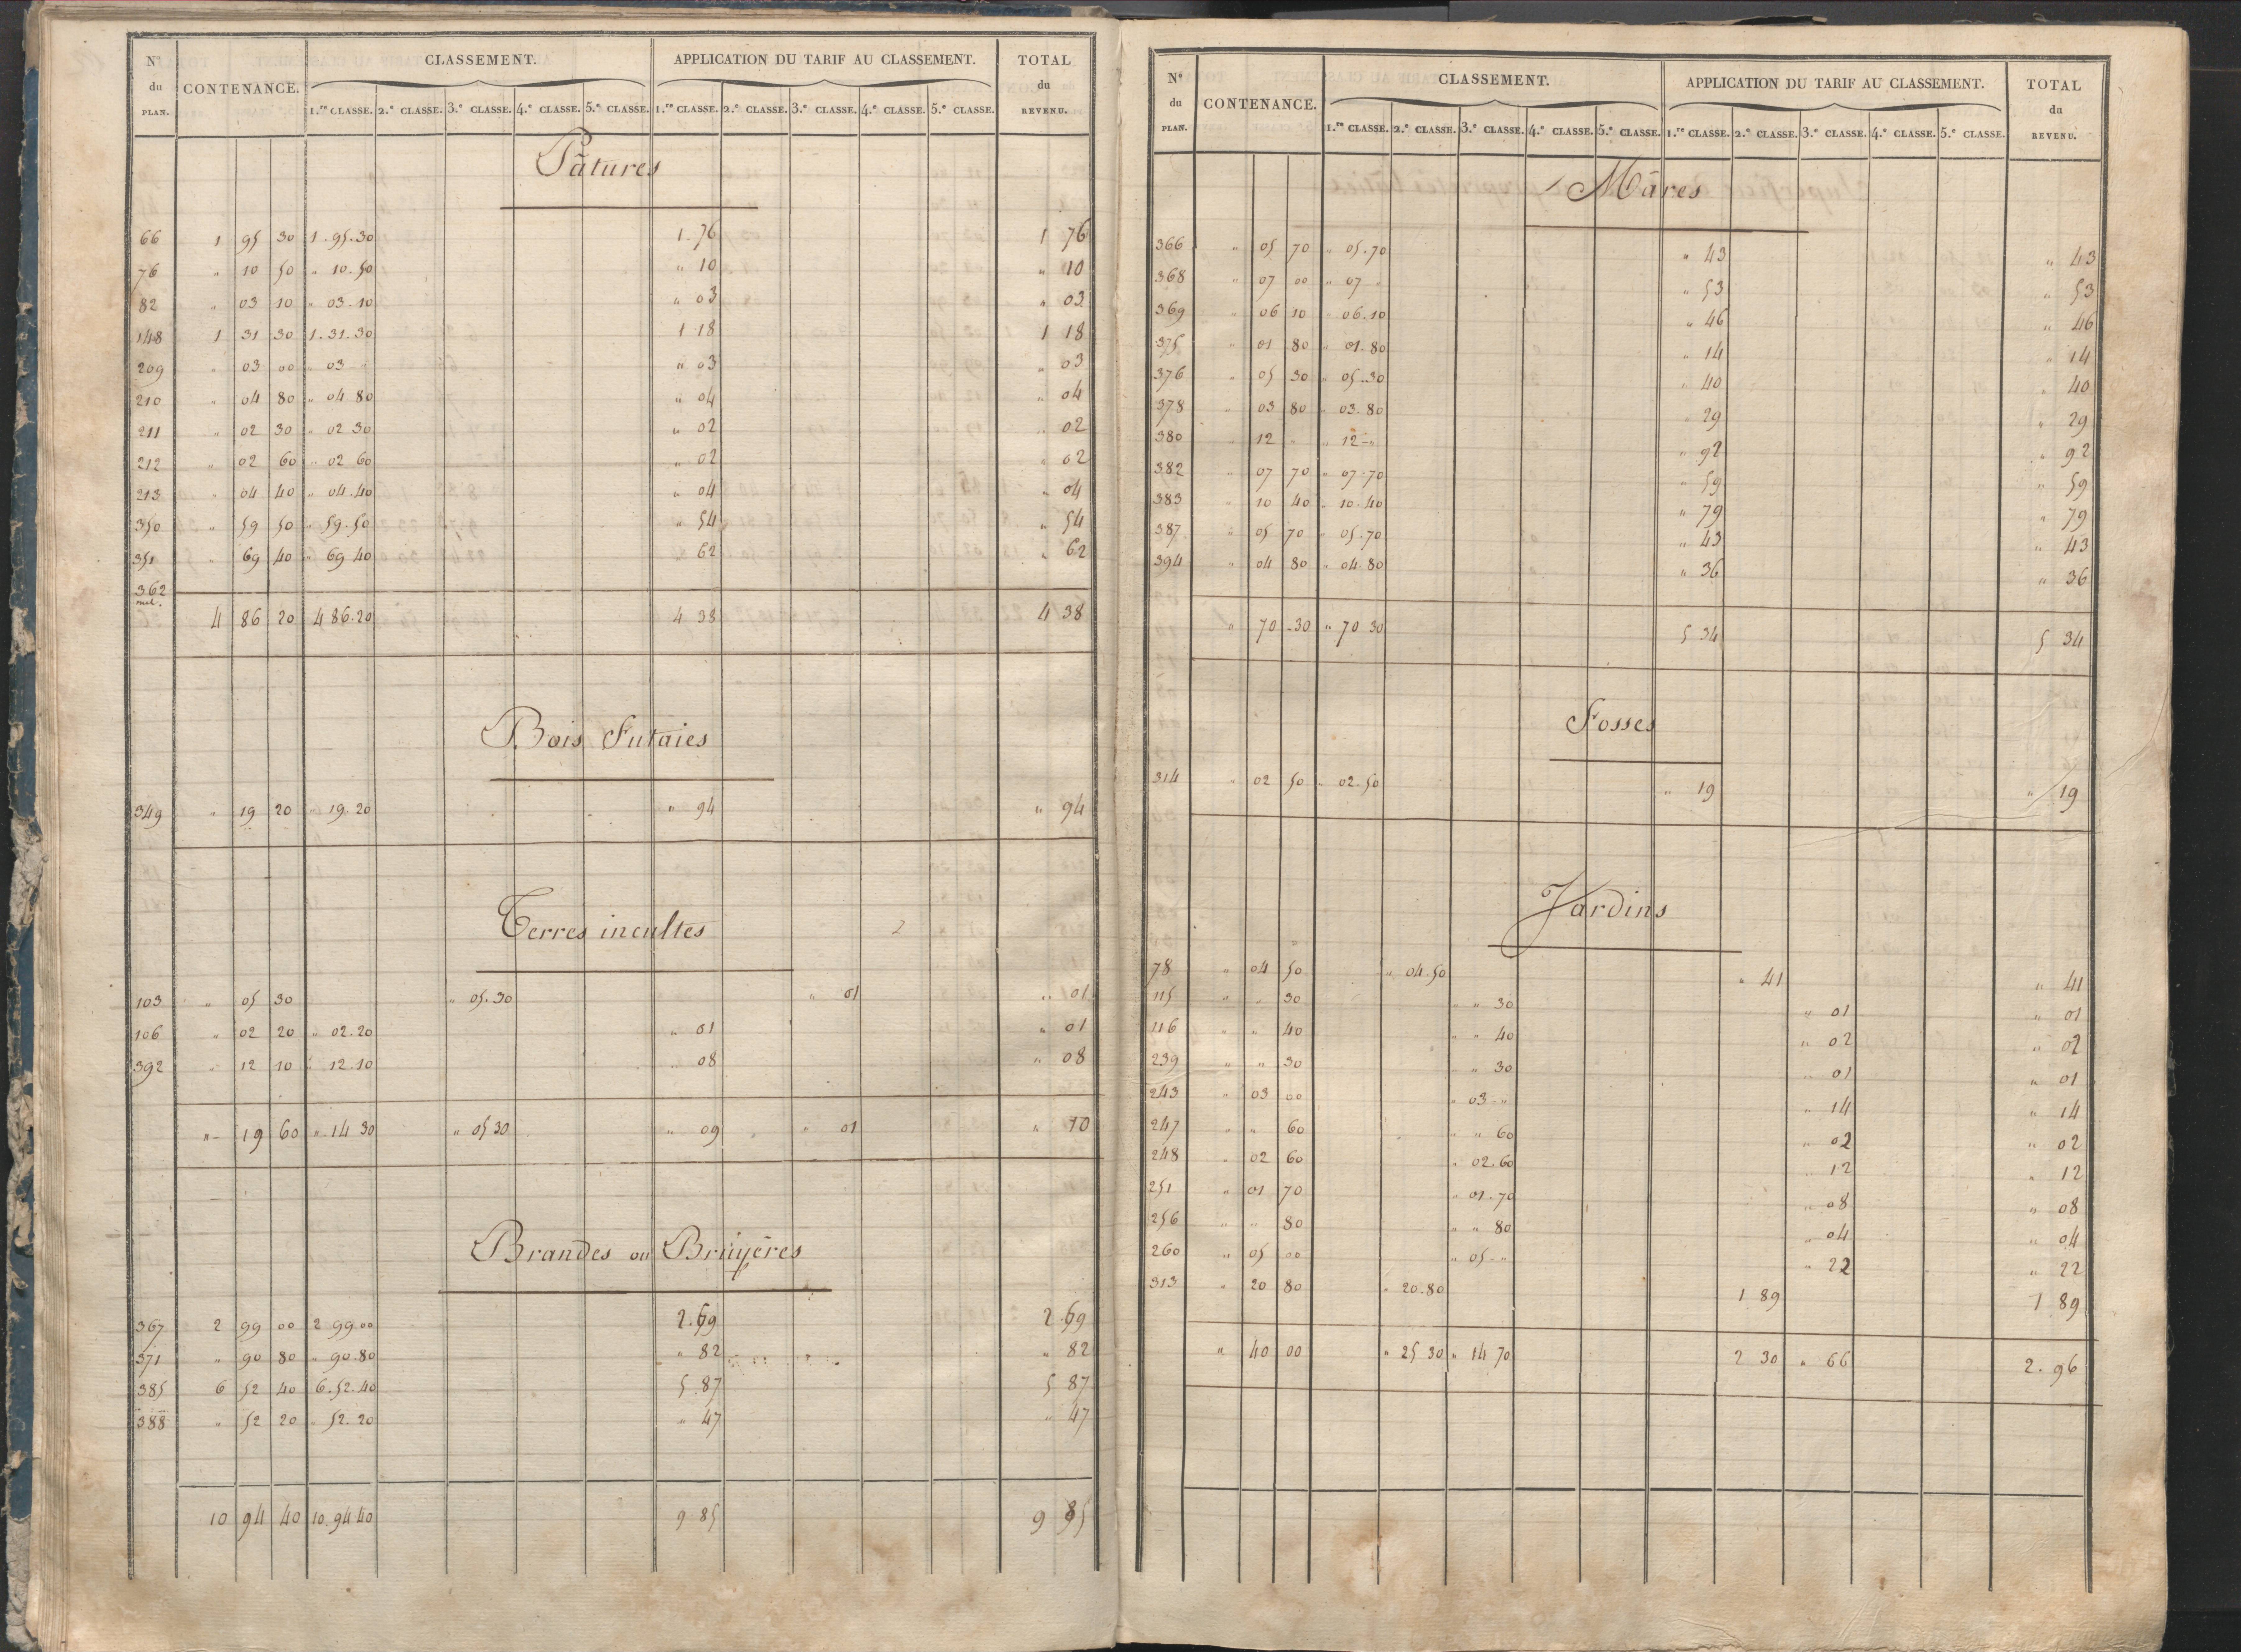 N.º du PLAN. CONTENANCE. CLASSEMENT. APPLICATION DU TARIF AU CLASSEMENT. TOTAL du REVENU.
1.re CLASSE. 2.e CLASSE. 3.e CLASSE. 4.e CLASSE. 5.e CLASSE. 1.re CLASSE. 2.e CLASSE. 3.e CLASSE. 4.e CLASSE. 5.e CLASSE.
Pâtures
66 1 95 30 1.95.30 1.76 1 76
76 " 10 50 " 10.50 " 10 " 10
82 " 03 10 " 03.10 " 03 " 03
148 1 31 30 1.31.30 1 18 1 18
209 " 03 00 " 03 " " 03 " 03
210 " 04 80 " 04 80 " 04 " 04
211 " 02 30 " 02 30 " 02 " 02
212 " 02 60 " 02 60 " 02 " 02
213 " 04 40 " 04.40 " 04 " 04
350 " 59 50 " 59.50 " 54 " 54
351 " 69 40 " 69 40 " 62 " 62
362
4 86 20 4 86.20 4 38 4 38
Bois Futaies
349 " 19 20 " 19.20 " 94 " 94
Terres incultes
103 " 05 30 " 05.30 " 01 " 01
106 " 02 20 " 02.20 " 01 " 01
392 " 12 10 " 12.10 " 08 " 08
" 19 60 " 14 30 " 05 30 " 09 " 01 " 10
Brandes ou Bruyères
367 2 99 00 2 99.00 2.69 2.69
371 " 90 80 " 90.80 " 82 " 82
385 6 52 40 6.52.40 5.87 5 87
388 " 52 20 " 52.20 " 47 " 47
10 94 40 10.94 40 9 85 9 85
N.º du PLAN. CONTENANCE. CLASSEMENT. APPLICATION DU TARIF AU CLASSEMENT. TOTAL du REVENU.
1.re CLASSE. 2.e CLASSE. 3.e CLASSE. 4.e CLASSE. 5.e CLASSE. 1.re CLASSE. 2.e CLASSE. 3.e CLASSE. 4.e CLASSE. 5.e CLASSE.
Mâres
366 " 05 70 " 05.70 " 43 " 43
368 " 07 00 " 07 " " 53 " 53
369 " 06 10 " 06.10 " 46 " 46
375 " 01 80 " 01.80 " 14 " 14
376 " 05 30 " 05.30 " 40 " 40
378 " 03 80 " 03.80 " 29 " 29
380 " 12 " " 12 " " 92 " 92
382 " 07 70 " 07.70 " 59 " 59
383 " 10 40 " 10.40 " 79 " 79
387 " 05 70 " 05.70 " 43 " 43
394 " 04 80 " 04.80 " 36 " 36
" 70 30 " 70 30 5 34 5 34
Fosses
314 " 02 50 " 02.50 " 19 " 19
Jardins
78 " 04 50 " 04.50 " 41 " 41
115 " " 30 " " 30 " 01 " 01
116 " " 40 " " 40 " 02 " 02
239 " " 30 " " 30 " 01 " 01
243 " 03 00 " 03 " " 14 " 14
247 " " 60 " " 60 " 02 " 02
248 " 02 60 " 02.60 " 12 " 12
251 " 01 70 " 01.70 " 08 " 08
256 " " 80 " " 80 " 04 " 04
260 " 05 00 " 05 " " 22 " 22
313 " 20 80 " 20.80 1 89 1 89
" 40 00 " 25 30 " 14 70 2 30 " 66 2.96